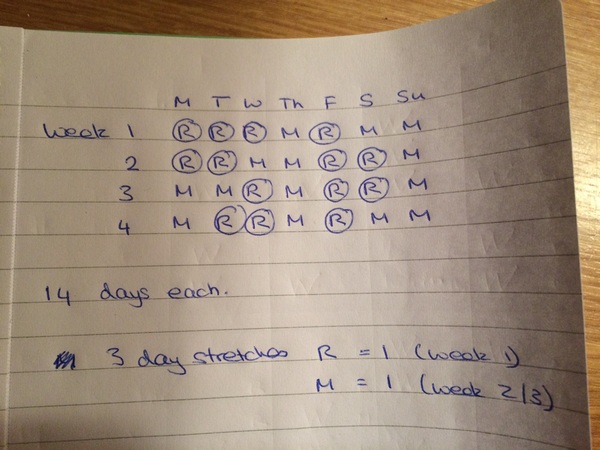 M T W Th F S Su
Week 1 R R R M R M M
2 R R M M R R M
3 M M R M R R M
4 M R R M R M M
14 days each.
3 day stretches R = 1 (week 1)
M = 1 (week 2/3)